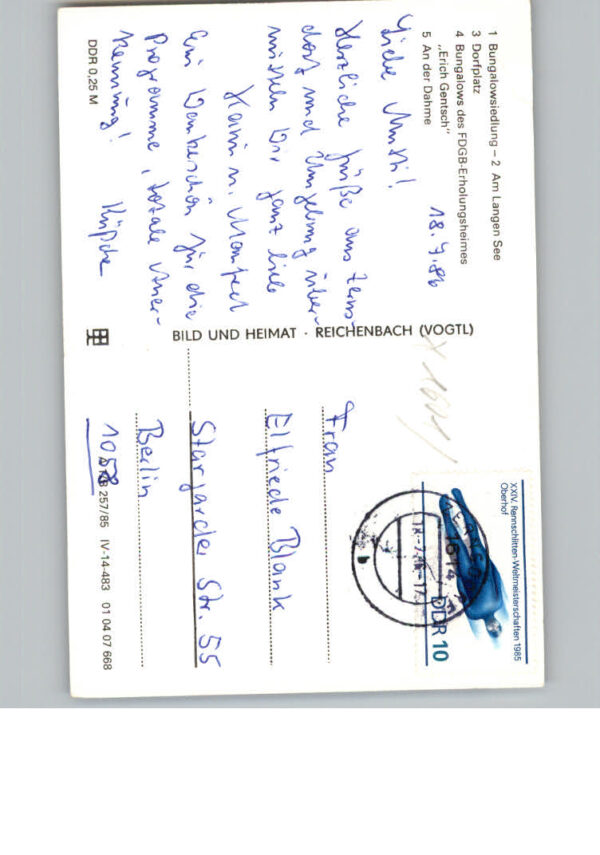 1 Bungalowsiedlung – 2 Am Langen See
3 Dorfplatz
4 Bungalows des FDGB-Erholungsheimes
„Erich Gentsch"
5 An der Dahme
18.7.86
Liebe Mutti!
Herzliche Grüße aus Zerns-
dorf und Umgebung über-
mitteln Dir ganz lieb
Karin u. Manfred
Ein Dankeschön für die
Programme, totale Aner-
kennung!
DDR 0,25 M
BILD UND HEIMAT · REICHENBACH (VOGTL)
XXIV. Rennschlitten-Weltmeisterschaften 1985
Oberhof
DDR 10
1614
b
Frau
Elfriede Blank
Stargarder Str. 55
Berlin
1058
257/85 IV-14-483 01 04 07 668